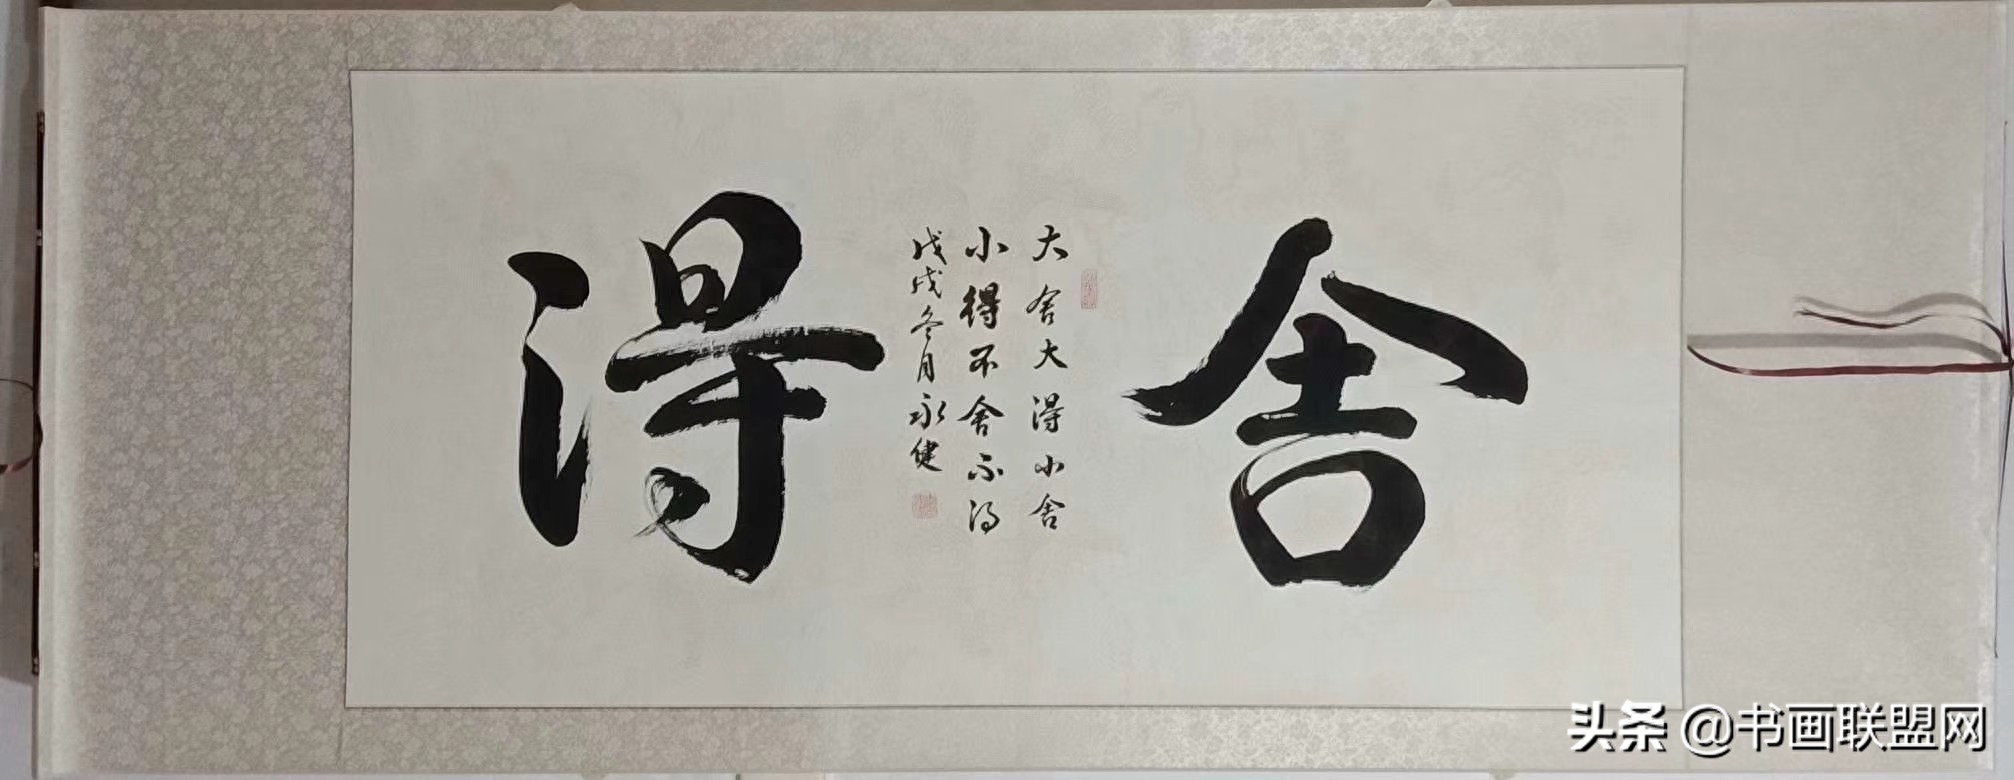 舍得
大舍大得小舍
小得不舍不得
戊戌冬月永健
头条 @书画联盟网